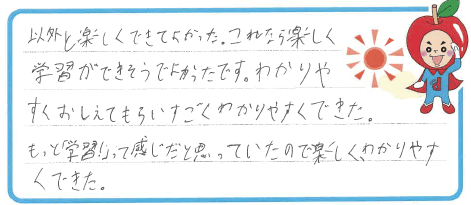 以外と楽しくできてよかった。これなら楽しく
学習ができそうでよかったです。わかりや
すくおしえてもらいすごくわかりやすくできた。
もっと「学習！」って感じだと思っていたので楽しく、わかりやす
くできた。
d